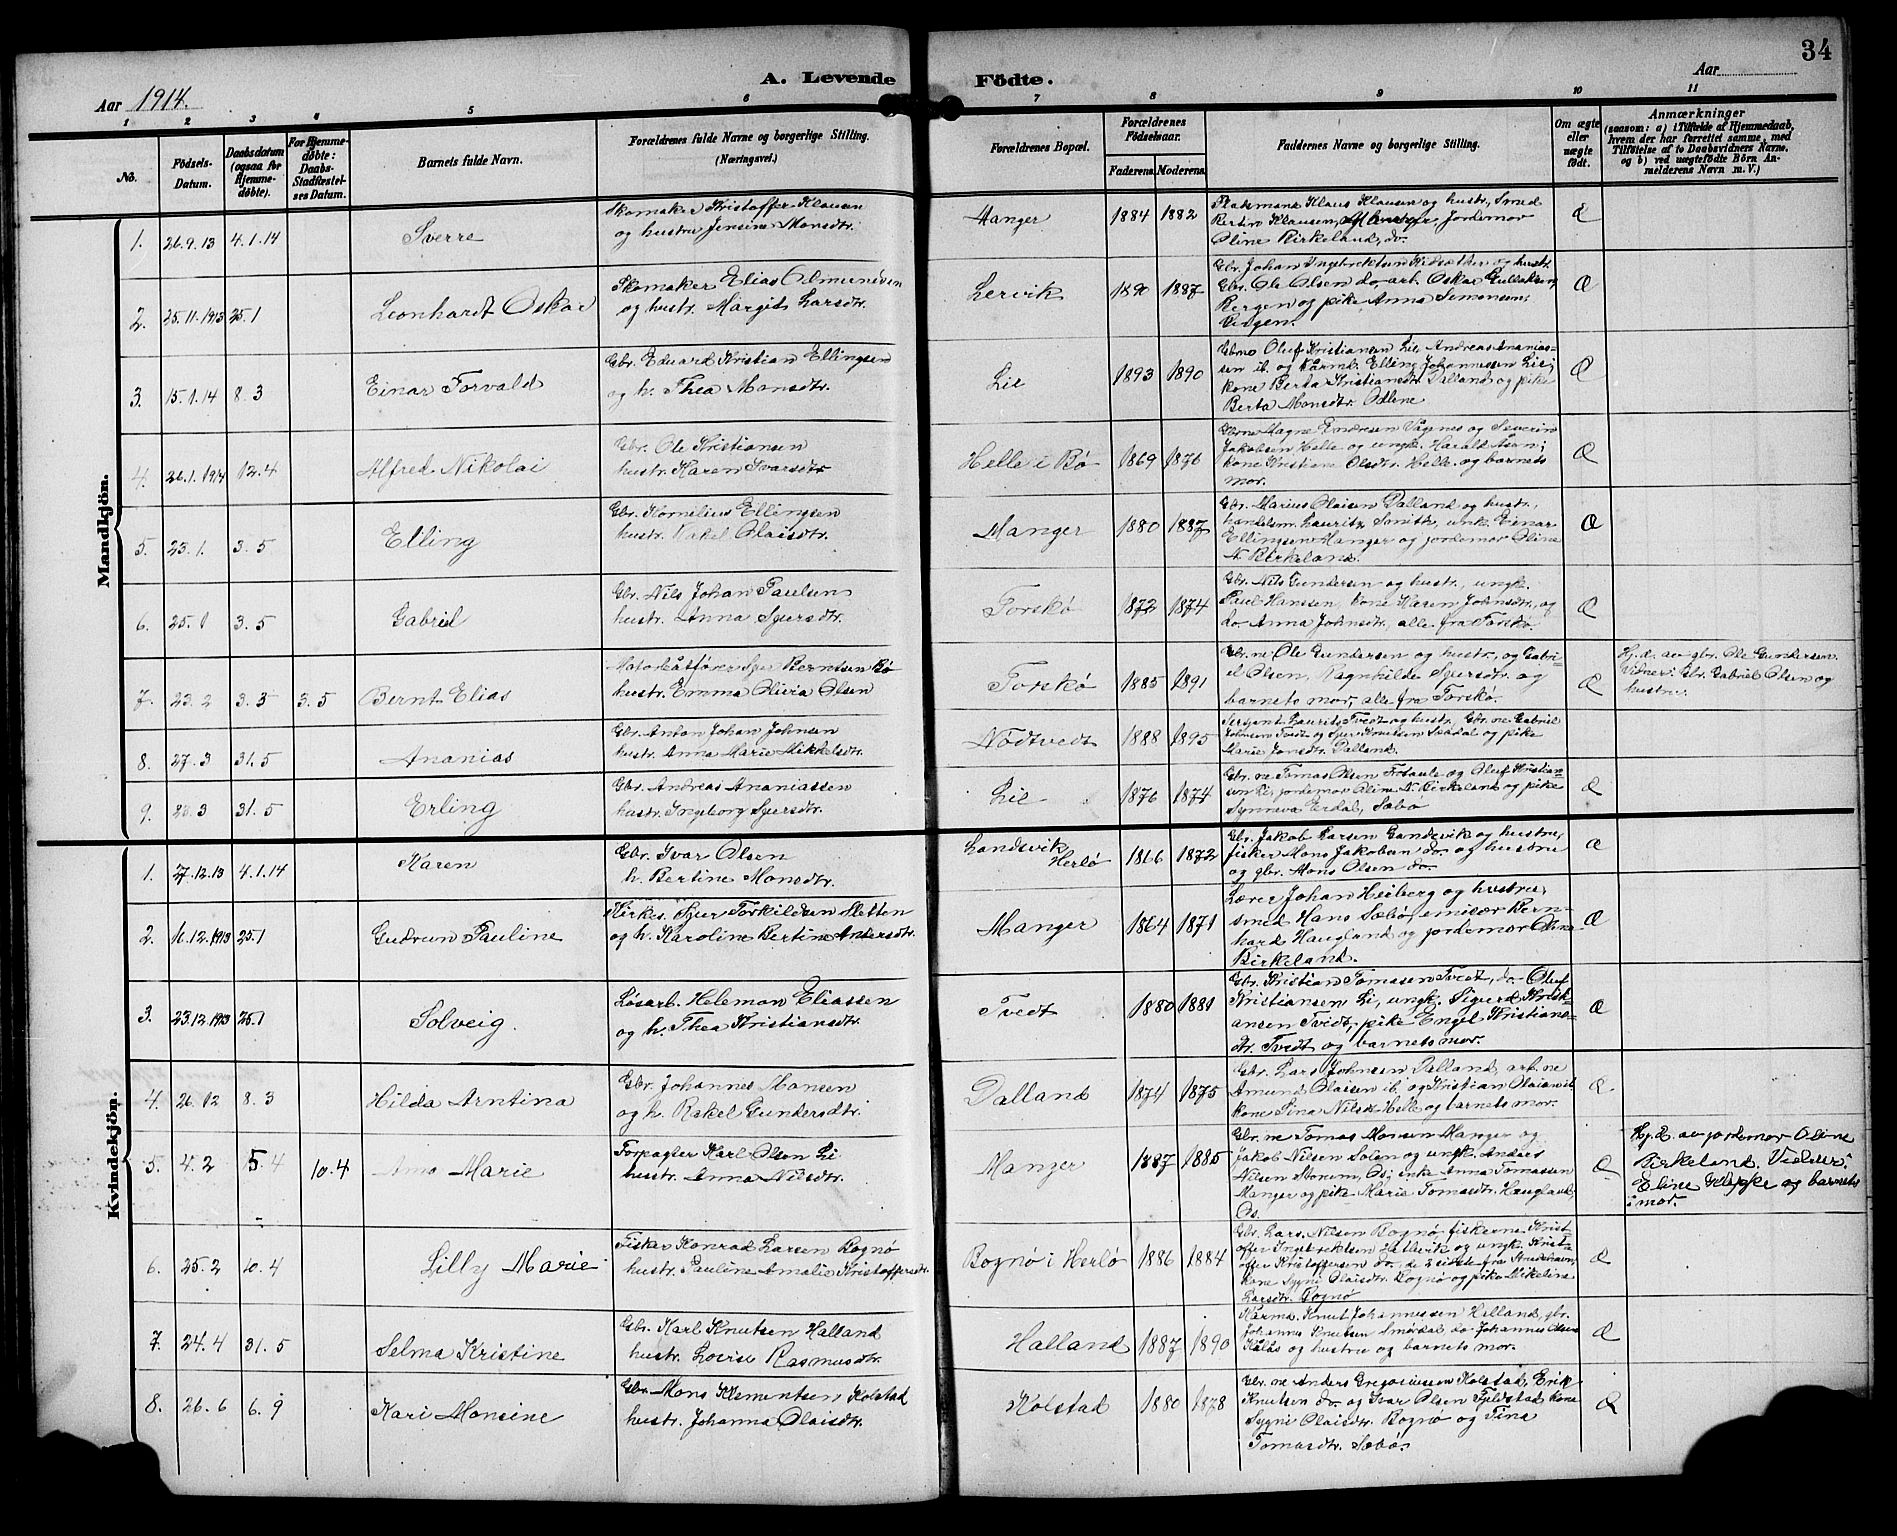 34
A. Levende Födte.
Aar 1914.
Aar
1 2 3 4 5 6 7 8 9 10 11
No.
Födsels-
Datum.
Daabsdatum
(ogsaa for
Hjemme-
döbte).
For Hjemme-
döbte:
Daabs-
Stadfæstel-
ses Datum.
Barnets fulde Navn.
Forældrenes fulde Navne og borgerlige Stilling.
(Næringsvei.)
Forældrenes Bopæl.
Forældrenes
Födselsaar.
Faderens Moderens
Faddernes Navne og borgerlige Stilling.
Om ægte
eller
uægte
födt.
Anmærkninger
(saasom: a) i Tilfælde af Hjemmedaab,
hvem der har forrettet samme, med
Tilföielse af to Daabsvidners Navne,
og b) ved uægtefödte Börn An-
melderens Navn m. V.)
Mandkjön.
1. 26.9.13 4.1.14 Sverre
Skomaker Kristoffer Klausen
og hustru Jensine Monsdtr.
Manger 1884 1882
Pladsmand Klaus Klausen og hustr, Smed
Bertin Klausen, Manger, Jordemor
Oline Birkeland, do. Æ
2. 25.11.1913 25.1 Leonhardt Oskar
Skomaker Elias Asmundsen
og hustr. Margit Larsdtr.
Lervik 1890 1887
Gbr. Johan Ingebrektsen Kidsæter og hustr.
Gbr. Ole Olsen do. arb. Oskar Gullaksen,
Bergen og pike Anna Simonsen,
Bergen. Æ
3. 15.1.14 8.3 Einar Torvald
Gbr. Edvard Kristian Ellingsen
og h. Thea Monsdtr.
Lie 1893 1890
Gbrne Oluf Kristiansen Lie, Andreas Ananias-
sen ib. og Kårmd. Elling Johannesen Lie;
kone Berta Kristiansdtr. Dalland, og pike
Berta Monsdtr. Odlene Æ
4. 26.1.1914 12.4 Alfred Nikolai
Gbr. Ole Kristiansen
hustr. Karen Ivarsdtr
Helle i Bø 1869 1876
Gbrne Magne Endresen Vågenes og Severin
Jakobsen Helle og ungk. Harald Åsen;
kone Kristiane Olsdtr. Helle og barnets
mor. Æ
5. 23.1. 3.5 Elling
Gbr. Kornelius Ellingsen
hustr. Rakel Olaisdtr.
Manger 1880 1887
Gbr. Marius Olaisen Dalland og hustr.,
handelsm. Lauritz Smith, unk. Einar
Ellingsen Manger og jordemor Oline
N. Birkeland. Æ
6. 25.1 3.5 Gabriel
Gbr. Nils Johan Paulsen
hustr. Anna Sjursdtr.
Torskø 1872 1874
Gbr. Nils Gundersen og hustr., ungk.
Paul Hanssen, kone Karen Johnsdtr., og
do. Anna Johnsdtr., alle fra Torskø. Æ
7. 23.2 3.3 3.5 Bernt Elias
Motorbåtfører Sjur Berntsen Bø
hustr. Emma Olivia Olsen
Torskø 1885 1891
Gbr.ne Ole Gundersen og hustr, og Gabri-
el Olsen, Ragnhilde Sjursdtr. og
barnets mor, alle fra Torskø. Æ
Hj.d. av gbr. Ole Gundersen.
Vidner: Gbr. Gabriel Olsen og
hustru.
8. 27.3 31.5 Ananias
Gbr. Anton Johan Johnsen
hustr. Anna Marie Mikkelsdtr.
Nödtvedt 1888 1895
Sersjant Laurits Tvedt og hustr, Gbr.ne Gabriel
Johnsen Tvedt og Sjur Knutsen Sæbdal og pike
Marie Jonsdtr. Dalland. Æ
9. 23.3 31.5 Erling
Gbr. Andreas Ananiassen
hustr. Ingeborg Sjursdtr.
Lie 1876 1874
Gbr.ne Tomas Olsen Toska og Oluf Kristian-
sen Li, jordemor Oline N. Birkeland og pike
Synneva Erdal, Sæbø Æ
Kvindekjön.
1. 27.12.13 4.1.14 Karen
Gbr. Ivar Olsen
h. Bertine Monsdtr.
Landsvik
Herlø 1866 1872
Gbr. Jakob Larsen Landsvik og hustru,
fisker Mons Jakobsen do. og hustru
og gbr. Mons Olsen do. Æ
2. 16.12.1913 25.1 Gudrun Pauline
Kirkes. Sjur Torkildsen Sletten
og h. Karoline Bertine Andersdtr.
Manger 1864 1871
Lærer Johan Heiberg og hustru,
smed Hans Sæbø, emisær Bern-
hard Haugland og jordemor Oline
Birkeland. Æ
3. 23.12.1913 25.1 Solveig.
Løsarb. Helemon Eliassen
og h. Thea Kristiansdtr.
Tvedt 1880 1881
Gbr. Kristian Tomassen Tvedt, do. Oluf
Kristiansen Li, ungk. Sigurd Kristi-
ansen Tvedt, pike Engel Kristians-
dtr. Tvedt og barnets mor. Æ
4. 26.12 8.3 Hilda Arntina
Gbr. Johannes Monsen
og h. Rakel Gundersdtr.
Dalland 1874 1875
Gbr. Lars Johnsen Dalland, arb.ne
Amund Olaisen ib. og Kristian Olaisen ib.
kone Sina Nilsdtr. Helle og barnets mor. Æ
5. 4.2 5.4 10.4 Anna Marie
Forpagter Karl Olsen Li
hustr. Anna Nilsdtr.
Manger 1887 1885
Gbr.ne Tomas Monsen Manger og
Jakob Nilsen Solen og ungk. Anders
Nilsen Monum, Os; enke Anna Tomassen
Manger og pike Marie Tomasdtr. Haugland,
Os. Æ
Hj.d. av jordemor Oline
Birkeland. Vidner:
Eline Gripke og barnets
mor.
6. 25.2 10.4 Lilly Marie
Fisker Konrad Larsen Bognø
hustr. Pauline Amalie Kristoffersdtr.
Bognø i Herlø 1886 1884
Gbr. Lars Nilsen Bognø, fiskerne Krist-
offer Ingebrektsen og ungk. Krist-
offer Kristoffersen do., de 2 sidste fra
kone Sygni Olaisdtr. Bognø og pike Mikeline
Larsdtr. Bognø Æ
7. 24.4 31.5 Selma Kristine
Gbr. Karl Knutsen Halland
hustr. Lovise Rasmusdtr.
Halland 1887 1890
Kårmd. Knut Johannessen Helland, gbr.
Johannes Knutsen Smørdal do Johannes Olsen
Kålås og hustru og barnets mor. Æ
8. 26.6 6.9 Kari Monsine
Gbr. Mons Klementsen Kolstad
hustr. Johanna Olaisdtr.
Kolstad 1880 1878
Gbr.ne Anders Gregoriussen Kolstad, Erik
Knutsen do. og Ivar Olsen Fjeldstad, kone
Sygni Olaisdtr. Bognø og Tina
Tomasdtr. Sæbø. Æ